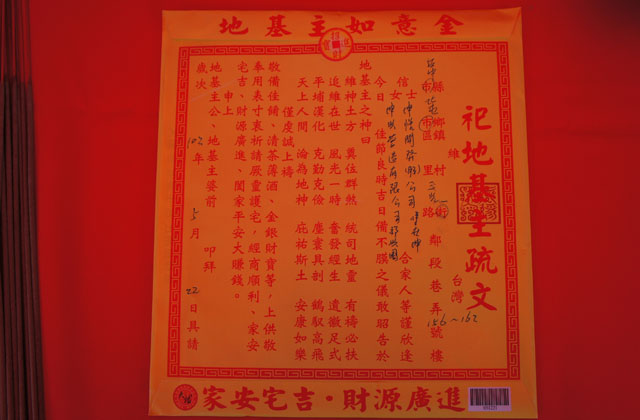 地基主如意金
祀地基主疏文
維 台灣
縣 鄉鎮 村 鄰段巷弄號樓
市 市區 里 路 街 156~162
信士女 合家人等謹欣逢
今日佳節良時吉日備不腆之儀敢昭告於
地基主之神曰
維神土方 異位群煞 統司地靈 有禱必扶
追維在世 風光一時 奮發經生 遺徽足式
平埔漢化 克勤克儉 塵寰具剖 鶴馭高飛
天上人間 淪為地神 庇祐斯土 安康如樂
僅虔誠上禱
敬備佳餚、清茶薄酒、金銀財寶等，上供敬
奉用表寸衷祈請嚴靈護宅，經商順利、家安
宅吉、財源廣進、闔家平安大賺錢。
申上
地基主公、地基主婆前 叩拜
歲次 102年 5月 22日具請
家安宅吉・財源廣進